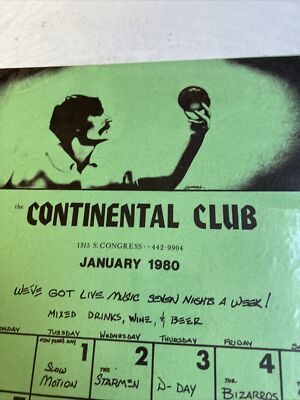 the CONTINENTAL CLUB
1315 S. CONGRESS · · 442-9904
JANUARY 1980
WE'VE GOT LIVE MUSIC SEVEN NIGHTS A WEEK!
MIXED DRINKS, WINE, & BEER
NDAY TUESDAY WEDNESDAY THURSDAY FRIDAY SA
NEW YEARS DAY 1 2 3 4
SLOW MOTION THE STARMEN D-DAY THE BIZARROS